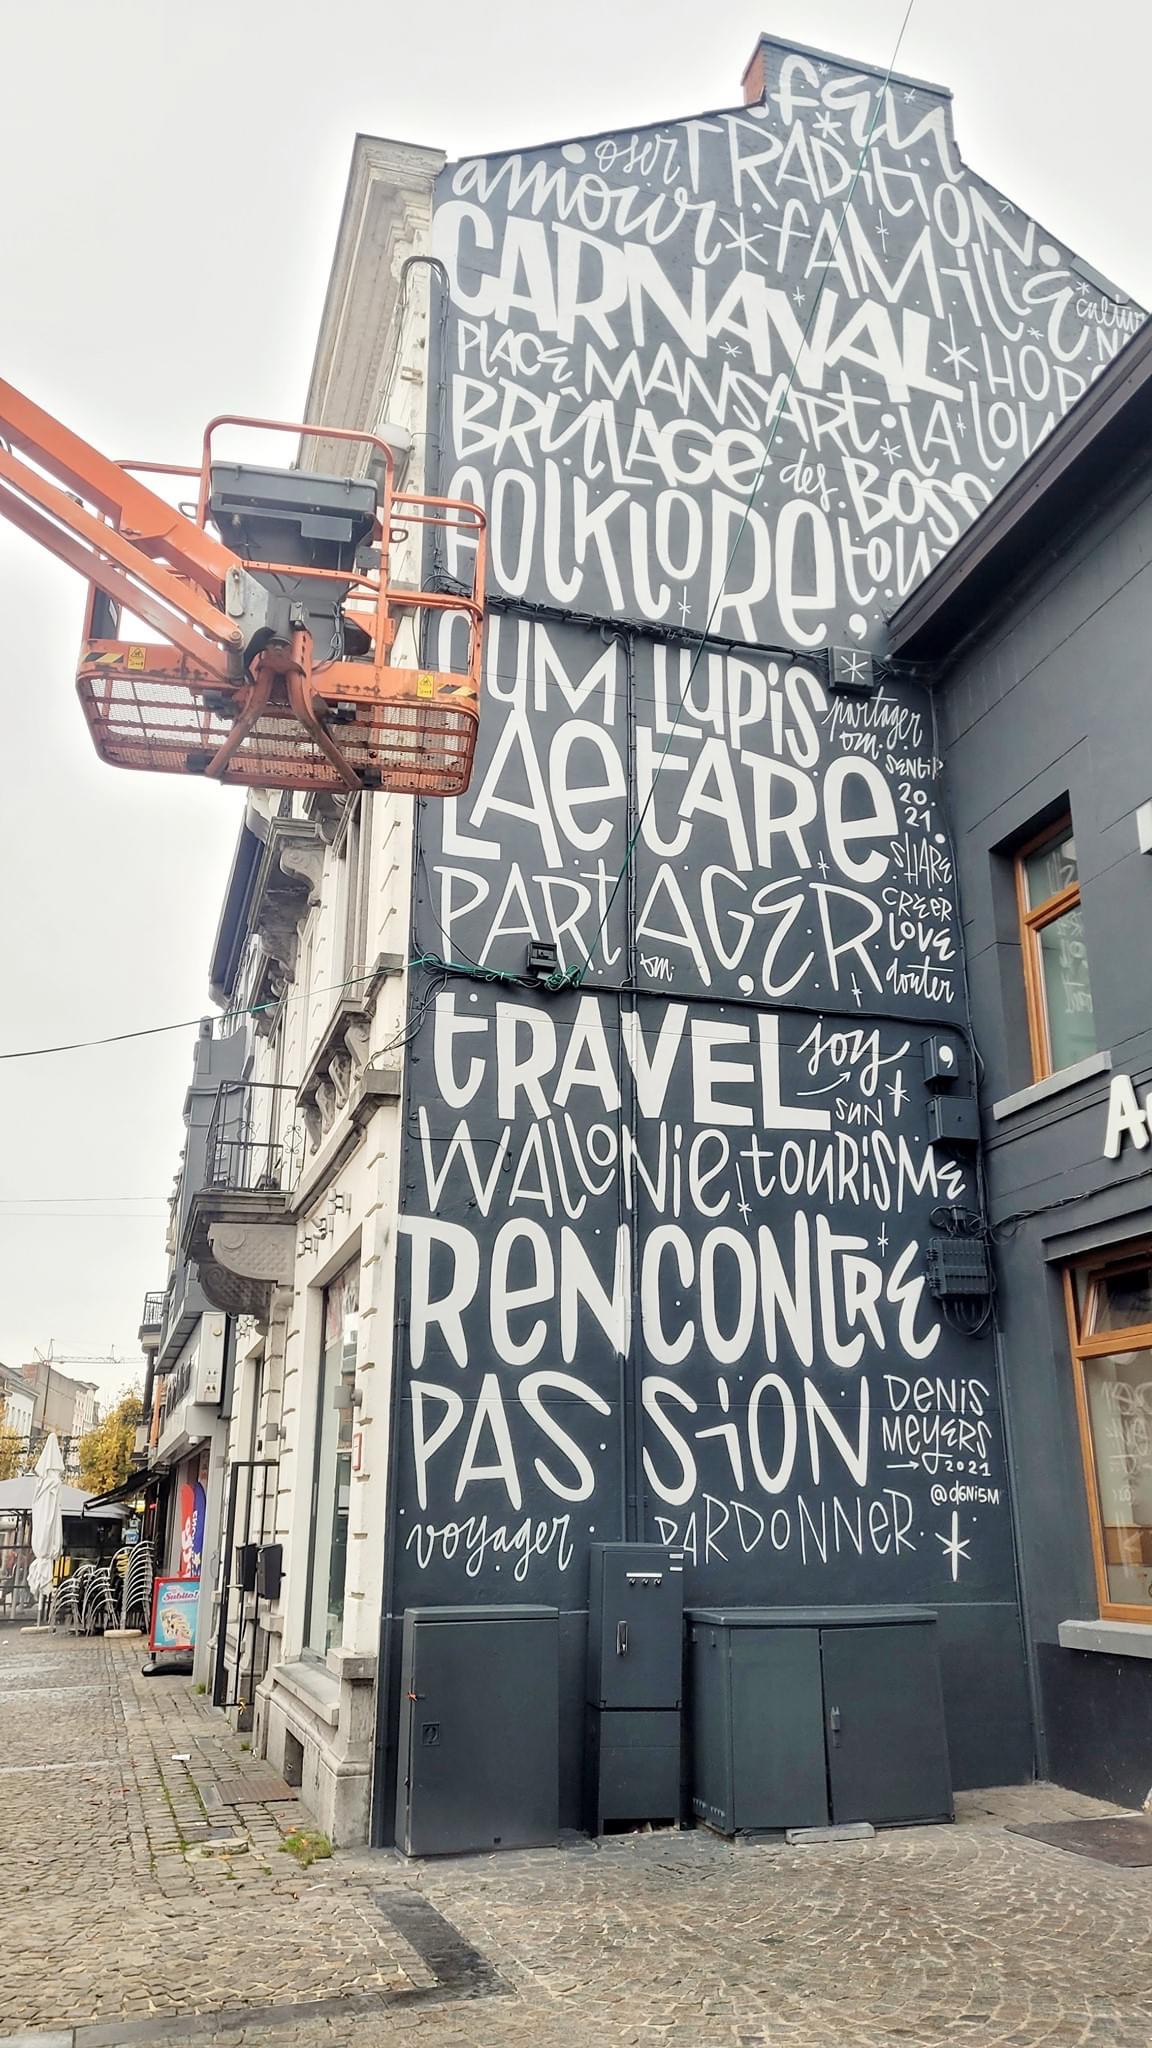 feu
oser TRADITION
amour * fAMillE
culture
CARNAVAL * HORS
PLACE MANSART • LA LOU
BRÛLAGE des BOSS
fOLKlORe
CUM LUPIS
partager
om.
SENTIR
LAetARe
20.
21
SHARE
PARtAGER
CREER
LOVE
douter
om.
tRAVEL joy
SUN
WALLONie tOURiSME
RENCONtRE
PASSiON
DENiS
MEYERS
→ 2021
@d6Ni5M
voyager PARDONNER
Subito!